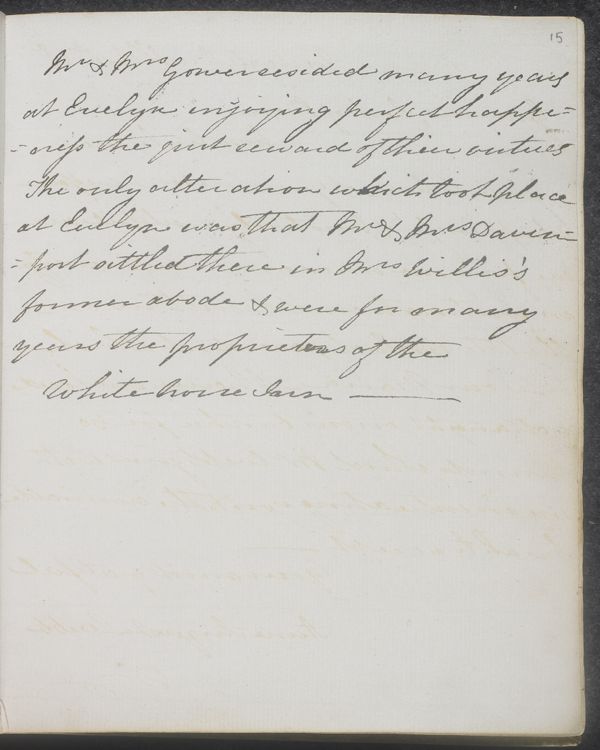 15
Mr & Mrs Gower resided many years
at Evelyn injoying perfect happi=
=ness the just reward of their virtues
The only alteration which took place
at Evelyn was that Mr & Mrs Daven=
=port sittled there in Mrs Willis's
former abode & were for many
years the proprietors of the
White horse Inn ———